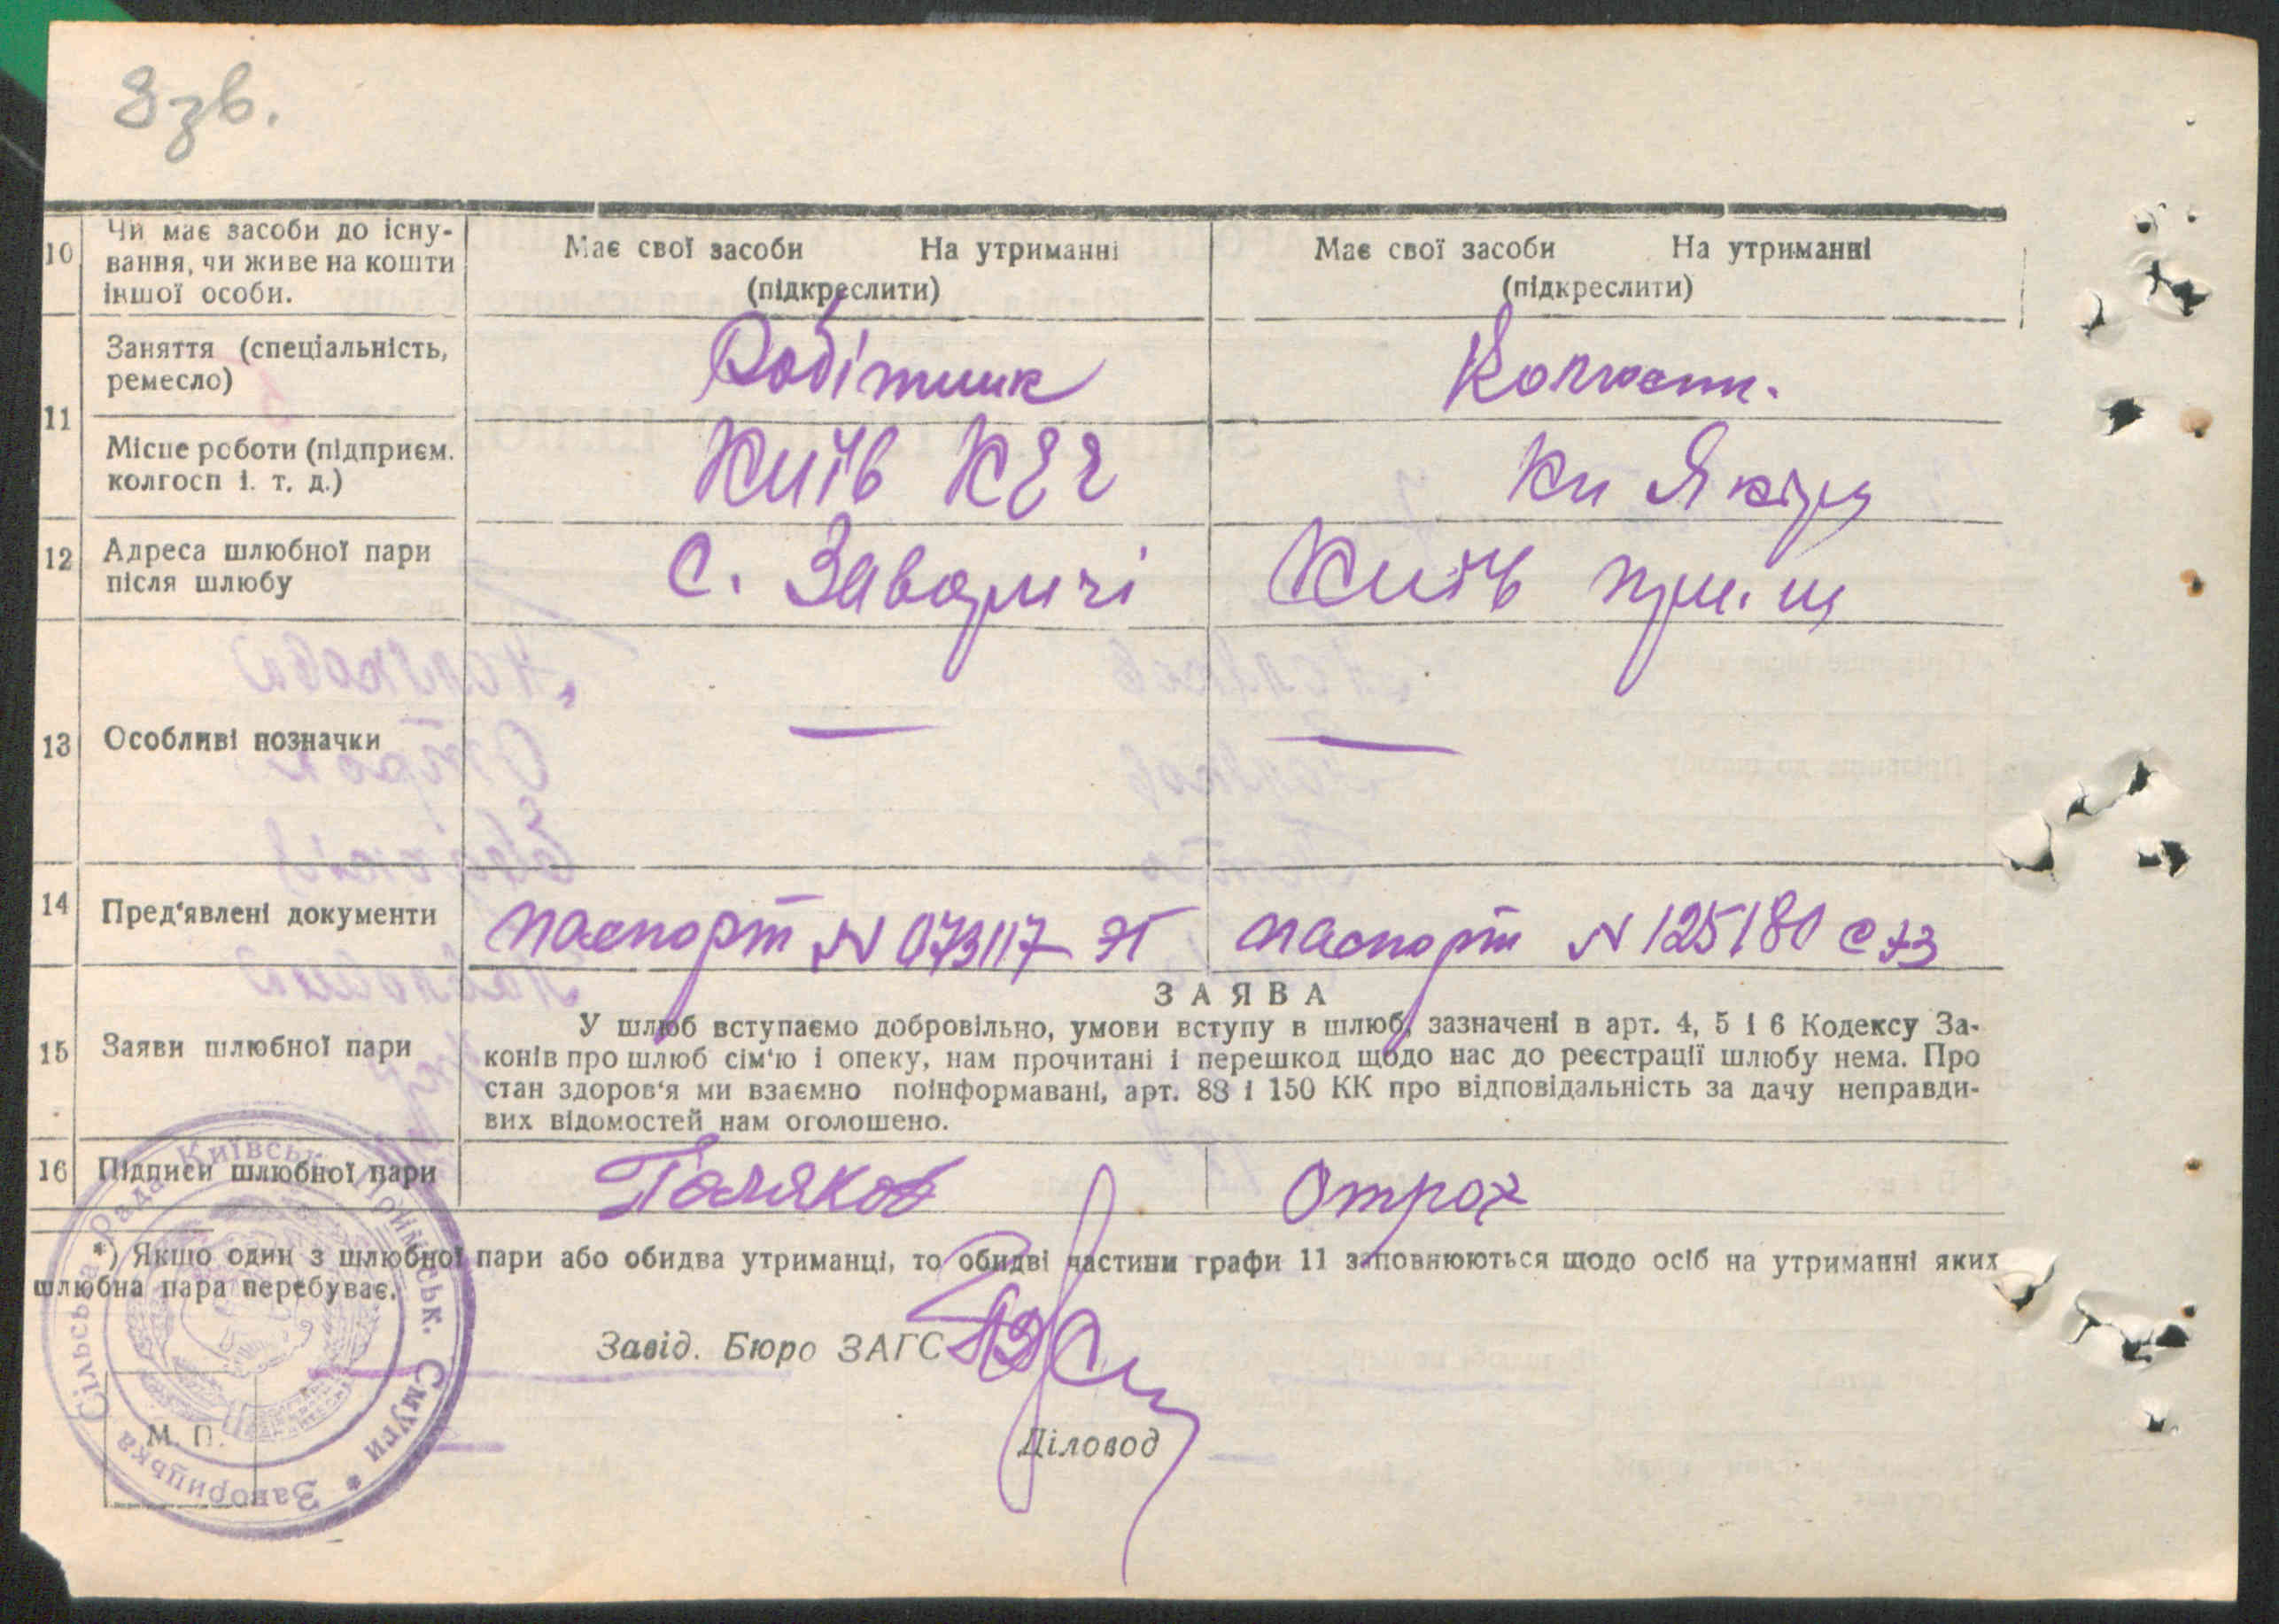 3 зв.
10 Чи має засоби до існу-
вання, чи живе на кошти
іншої особи.
Має свої засоби На утриманні
(підкреслити)
Має свої засоби На утриманні
(підкреслити)
11 Заняття (спеціальність,
ремесло)
Робітник
Місце роботи (підприєм.
колгосп і. т. д.)
Київ КЕЧ
12 Адреса шлюбної пари
після шлюбу
с.
Київ
13 Особливі позначки
— —
14 Пред'явлені документи
паспорт N 073117
паспорт N 125180
15 Заяви шлюбної пари
ЗАЯВА
У шлюб вступаємо добровільно, умови вступу в шлюб, зазначені в арт. 4, 5 і 6 Кодексу За-
конів про шлюб сім'ю і опеку, нам прочитані і перешкод щодо нас до реєстрації шлюбу нема. Про
стан здоров'я ми взаємно поінформавані, арт. 88 і 150 КК про відповідальність за дачу неправди-
вих відомостей нам оголошено.
16 Підписи шлюбної пари
Поляков
Отрох
*) Якщо один з шлюбної пари або обидва утриманці, то обидві частини графи 11 заповнюються щодо осіб на утриманні яких
шлюбна пара перебуває.
Завід. Бюро ЗАГС
Діловод
М. П.
Сільська Рада Київськ. Приміськ. Смуги *